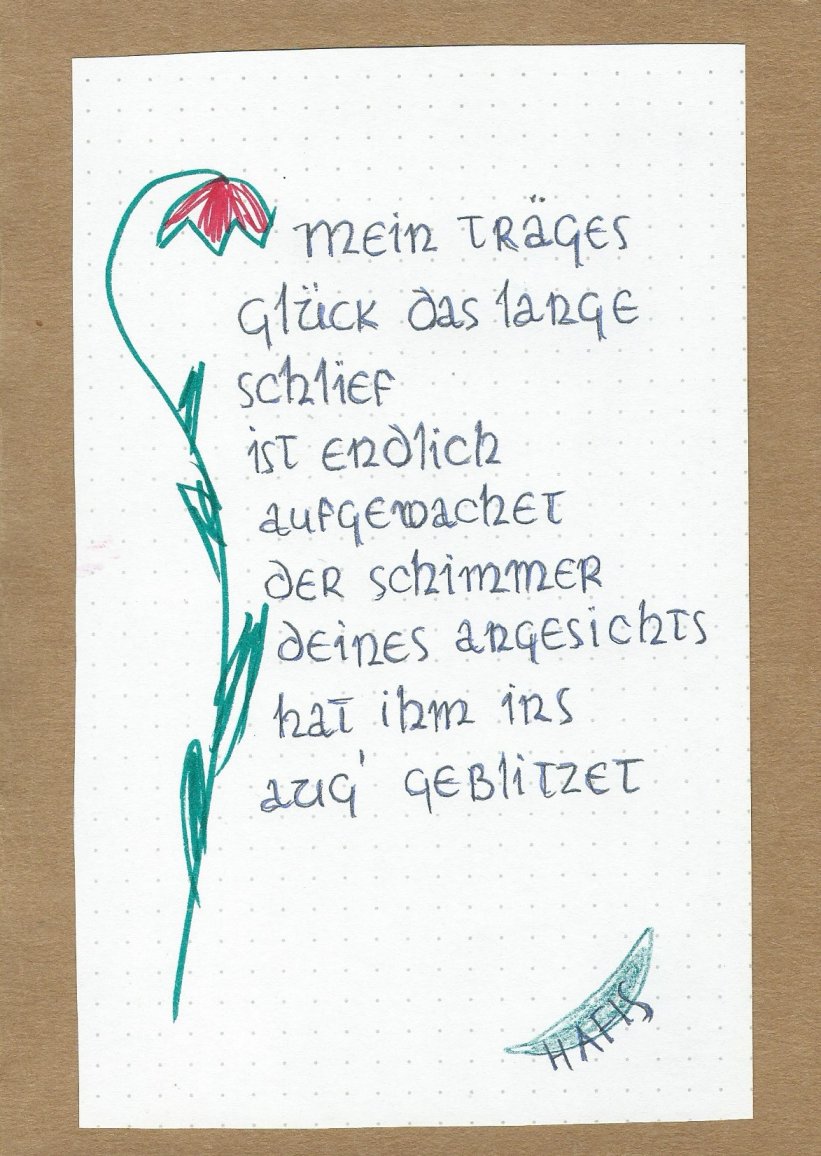 mein träges
Glück das lange
schlief
ist endlich
aufgewachet
der schimmer
deines angesichts
hat ihm ins
aug' geblitzet
HAFIS